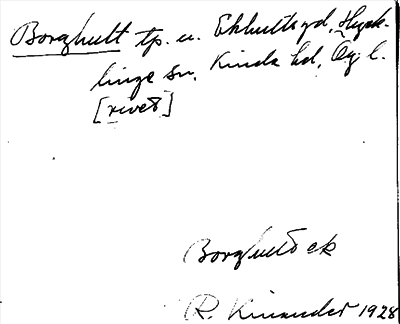 Borghult tp. u. Ekhults gd, Hyck-
linge sn. Kinda hd, Ög. l.
[rivet]
Borghults ek
R. Kinander 1928